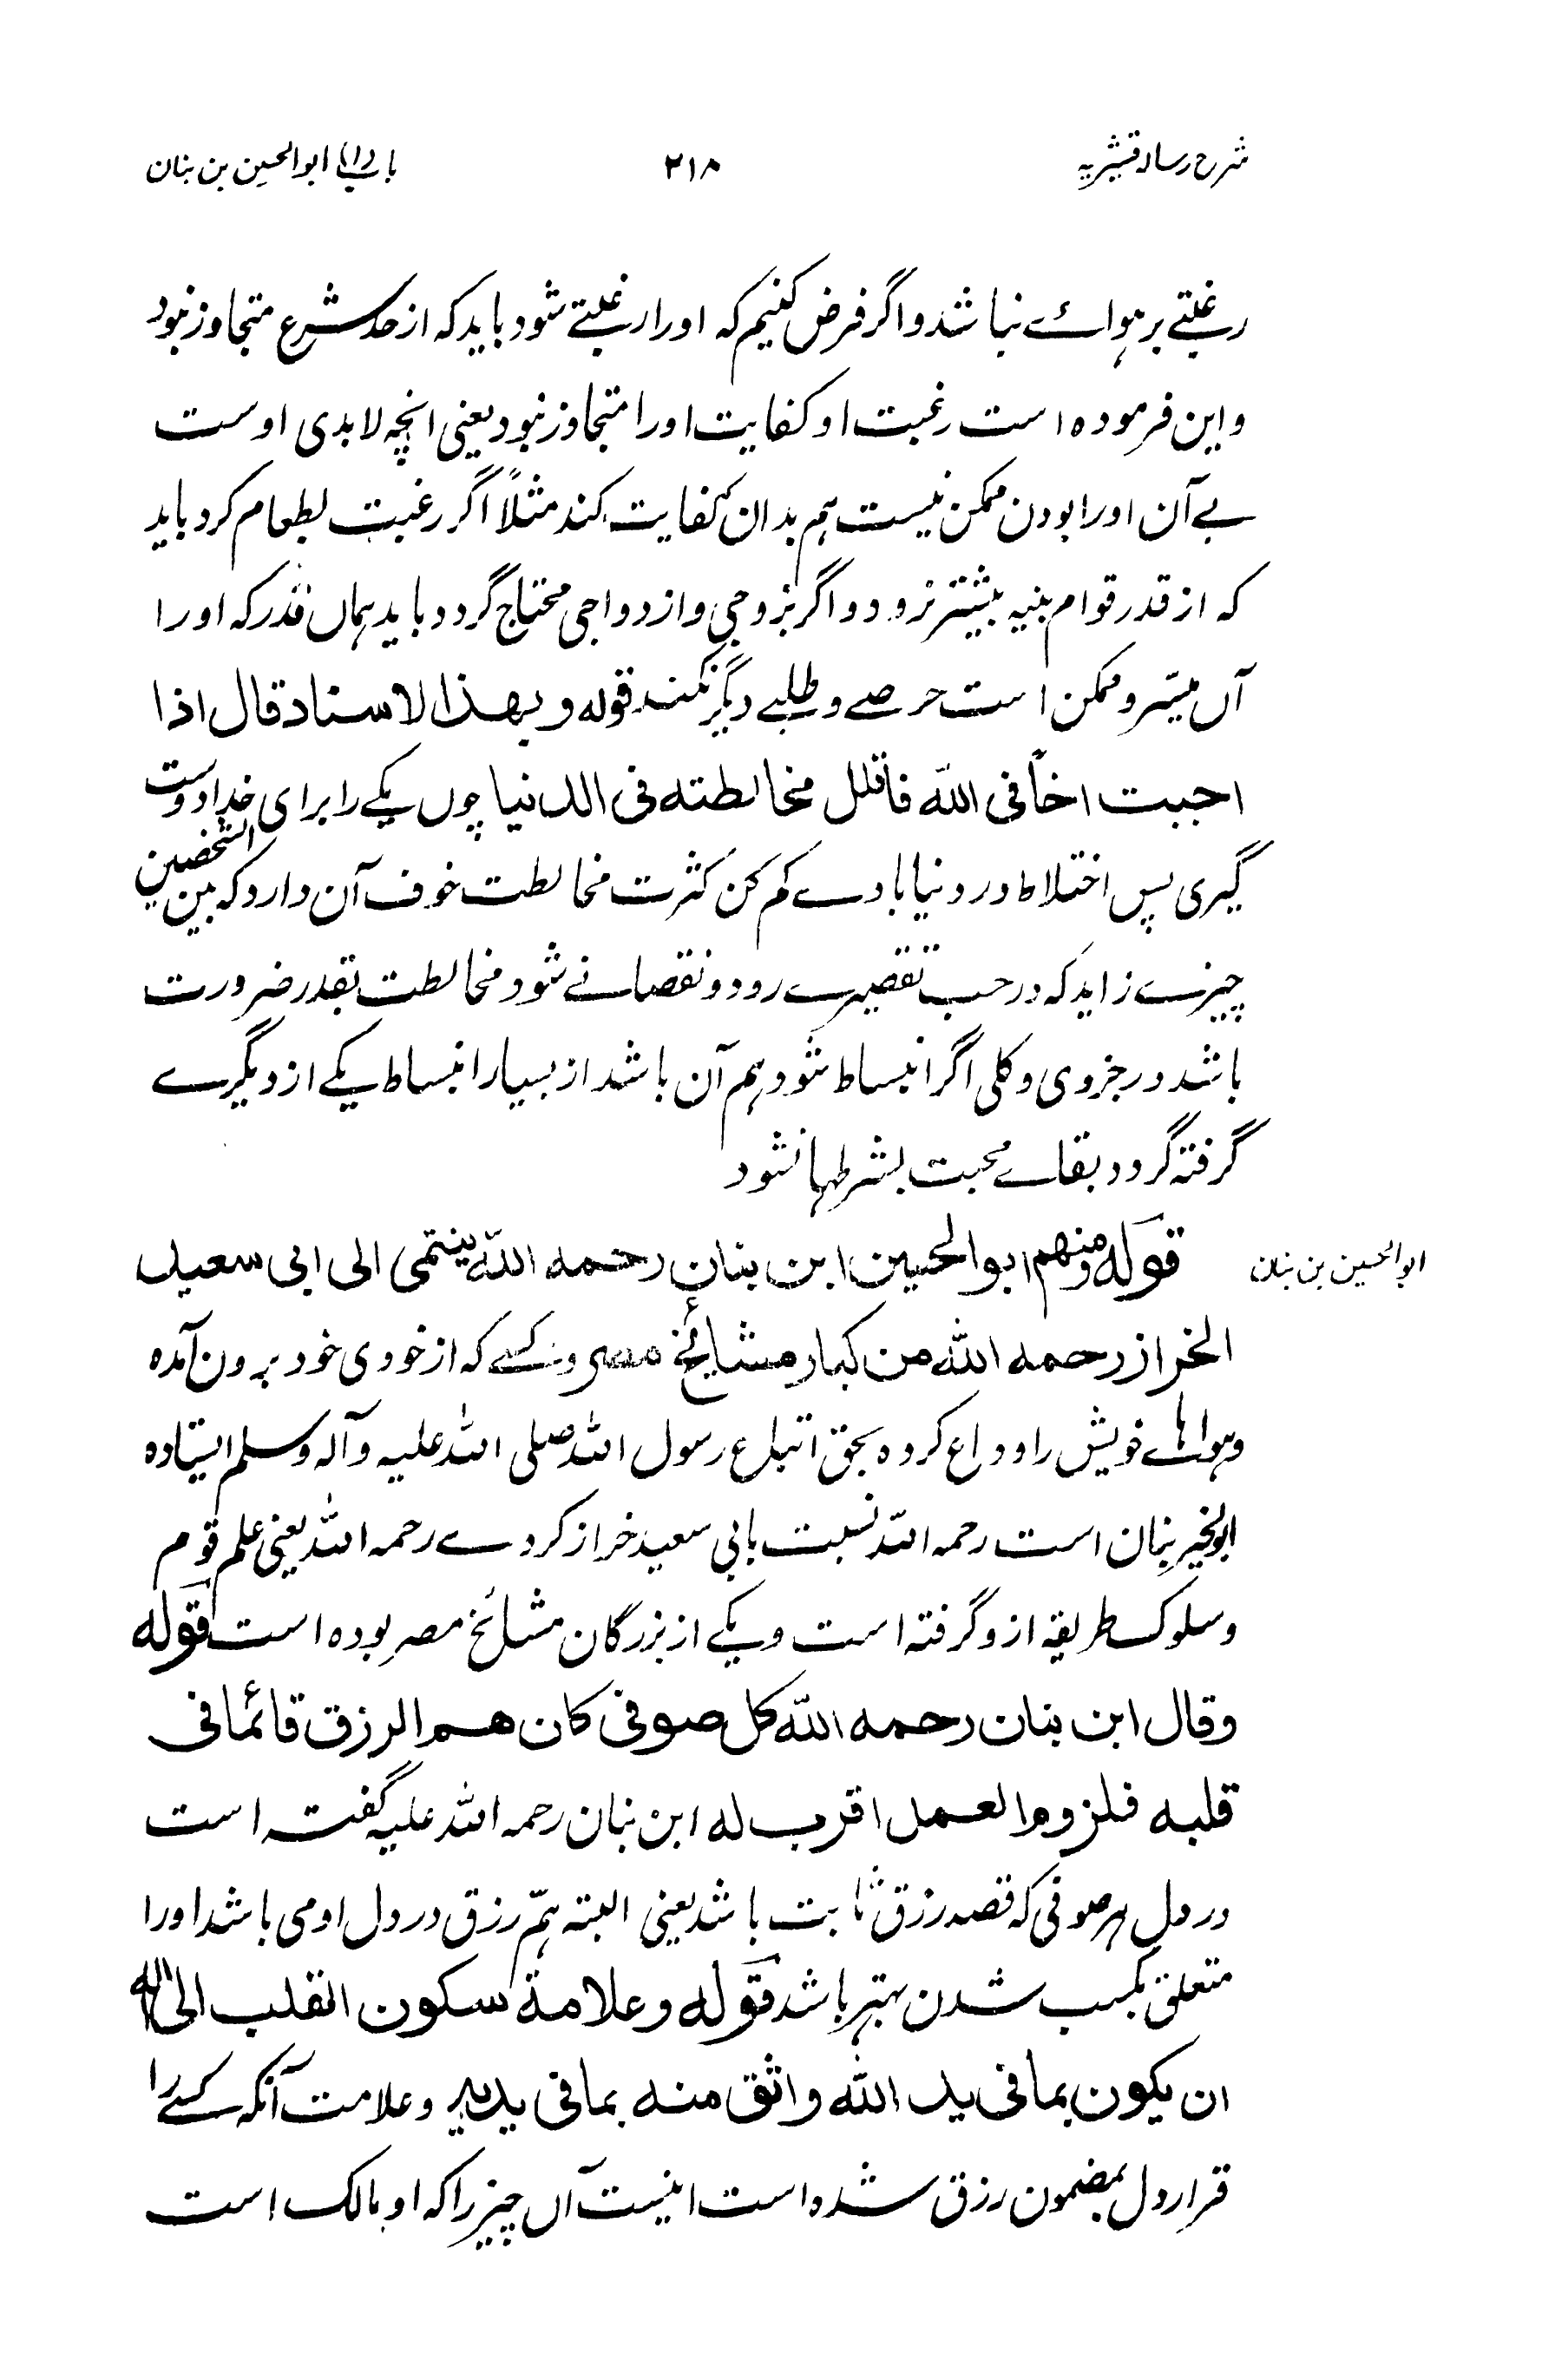 شرح رساله قشیریہ
۲۱۸
باب (۱) ابوالحسین بن بنان
رغبتے بر ہوائے نباشد و اگر فرض کنیم کہ اورا رغبتے شود باید کہ از حد شرع متجاوز نبود
و این فرموده است رغبت او کفایت اورا متجاوز نبود یعنی انچہ لابدی اوست
بے آن اورا بودن ممکن نیست ہم بدان کفایت کند مثلاً اگر رغبت بطعام کرد باید
کہ از قدر قوام بنیہ بیشتر نرود و اگر بزوجی و ازدواجی محتاج گردد باید ہماں قدر کہ اورا
آں میسّر و ممکن است حرصے و طلبے دیگر نکند قوله وبهذا الاسناد قال اذا
احببت اخًا فی اللّٰه فاقلل مخالطته فی الدنیا چوں یکے را برای خدا دوست
گیری پس اختلاط در دنیا با وے کم کن کثرت مخالطت خوف آن دارد کہ بین الشخصین
چیزے زاید کہ در حب تقصیرے رود و نقصانے شود مخالطت بقدر ضرورت
باشد در جزوی و کلی اگر انبساط شود ہم آن باشد از بسیار انبساط یکے از دیگرے
گرفتہ گردد بقاے محبت بشرطہا نشود
ابوالحسین بن بنان
قوله ومنهم ابوالحسین ابن بنان رحمه اللّٰه ینتمی الی ابی سعید
الخراز رحمه اللّٰه من کبار مشائخ مصر و کسے کہ از خودی خود برون آمدہ
و ہواہاے خویش را وداع کردہ بحق اتباع رسول اللّٰه صلی اللّٰه علیہ و آلہ وسلم ایستادہ
ابوالخیر بنان است رحمہ اللّٰہ نسبت بابی سعید خراز کردے رحمہ اللّٰہ یعنی علم قوم
و سلوک طریقہ ازو گرفتہ است و یکے از بزرگان مشائخ مصر بودہ است قوله
وقال ابن بنان رحمه اللّٰه کل صوفی کان هم الرزق قائما فی
قلبه فلزوم العمل اقرب له ابن بنان رحمہ اللّٰہ علیہ گفتہ است
در دل ہر صوفی کہ قصد رزق ثابت باشد یعنی البتہ ہمّ رزق در دل او می باشد اورا
متعلق بکسب شدن بہتر باشد قوله وعلامة سکون القلب الی اللّٰه
ان یکون بما فی ید اللّٰه واثق منه بما فی یدیه و علامت آنکہ کسے را
قرار دل بمضمون رزق شدہ است اینست آں چیز را کہ او مالک است